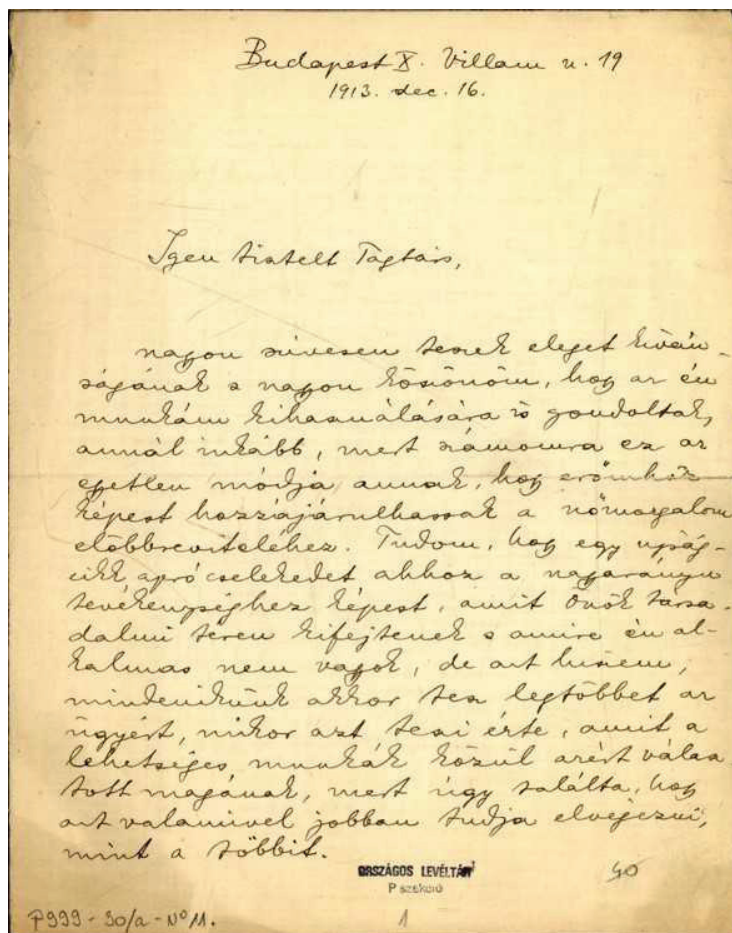 Budapest X. Villam u. 19
1913. dec. 16.
Igen tisztelt Tagtárs,
nagyon szívesen teszek eleget kíván-
ságának s nagyon köszönöm, hogy az én
munkám kihasználására is gondoltak,
annál inkább, mert számomra ez az
egyetlen módja annak, hogy erőmhöz
képest hozzájárulhassak a nőmozgalom
előbbreviteléhez. Tudom, hogy egy ujság-
cikk apró cselekedet ahhoz a nagyarányu
tevékenységhez képest, amit Önök társa-
dalmi téren kifejtenek s amire én al-
kalmas nem vagyok, de azt hiszem,
mindenikünk akkor tesz legtöbbet az
ügyért, mikor azt teszi érte, amit a
lehetséges munkák közül azért válasz
tott magának, mert úgy találta, hogy
azt valamivel jobban tudja elvégezni,
mint a többit.
ORSZÁGOS LEVÉLTÁR
P szekció
40
P999-30/a-No 11.
1